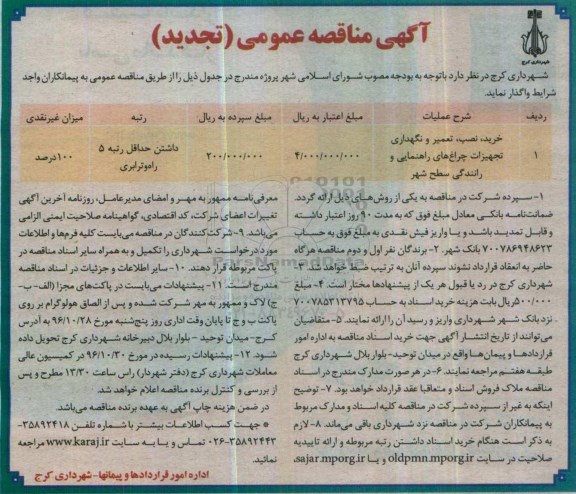 آگهی مناقصه عمومی (تجدید)
شهرداری کرج
شهرداری کرج در نظر دارد باتوجه به بودجه مصوب شورای اسلامی شهر پروژه مندرج در جدول ذیل را از طریق مناقصه عمومی به پیمانکاران واجد
شرایط واگذار نماید.
ردیف شرح عملیات مبلغ اعتبار به ریال مبلغ سپرده به ریال رتبه میزان غیرنقدی
۱ خرید، نصب، تعمیر و نگهداری تجهیزات چراغ‌های راهنمایی و رانندگی سطح شهر ۴/۰۰۰/۰۰۰/۰۰۰ ۲۰۰/۰۰۰/۰۰۰ داشتن حداقل رتبه ۵ راه‌وترابری ۱۰۰درصد
۱- سپرده شرکت در مناقصه به یکی از روش‌های ذیل ارائه گردد.
ضمانت‌نامه بانکی معادل مبلغ فوق که به مدت ۹۰ روز اعتبار داشته
و قابل تمدید باشد و یا واریز فیش نقدی به مبلغ فوق به حساب
۷۰۰۷۸۶۹۴۸۶۲۳ بانک شهر. ۲- برندگان نفر اول و دوم مناقصه هرگاه
حاضر به انعقاد قرارداد نشوند سپرده آنان به ترتیب ضبط خواهد شد. ۳-
شهرداری کرج در رد یا قبول هر یک از پیشنهادها مختار است. ۴- مبلغ
۵۰۰/۰۰۰ریال بابت هزینه خرید اسناد به حساب ۷۰۰۷۸۵۳۱۳۷۹۵
نزد بانک شهر شهرداری واریز و رسید آن را ارائه نمایند. ۵- متقاضیان
می‌توانند از تاریخ انتشار آگهی جهت خرید اسناد مناقصه به اداره امور
قراردادها و پیمان‌ها واقع در میدان توحید- بلوار بلال شهرداری کرج
طبقه هفتم مراجعه نمایند. ۶- در هر صورت مدارک مندرج در اسناد
مناقصه ملاک فروش اسناد و متعاقبا عقد قرارداد خواهد بود. ۷- توضیح
اینکه به غیر از سپرده شرکت در مناقصه کلیه اسناد و مدارک مربوط
به پیمانکاران شرکت در مناقصه نزد شهرداری باقی می‌ماند. ۸- لازم
به ذکر است هنگام خرید اسناد داشتن رتبه مربوطه و ارائه تاییدیه
صلاحیت در سایت oldpmn.mporg.ir و یا sajar.mporg.ir،
معرفی‌نامه ممهور به مهر و امضای مدیرعامل، روزنامه آخرین آگهی
تغییرات اعضای شرکت، کد اقتصادی، گواهینامه صلاحیت ایمنی الزامی
می‌باشد. ۹- شرکت‌کنندگان در مناقصه می‌بایست کلیه فرم‌ها و اطلاعات
مورد درخواست شهرداری را تکمیل و به همراه سایر اسناد مناقصه در
پاکت مربوطه قرار دهند. ۱۰- سایر اطلاعات و جزئیات در اسناد مناقصه
مندرج است. ۱۱- پیشنهادات می‌بایست در پاکت‌های مجزا (الف- ب-
ج) لاک و ممهور به مهر شرکت شده و پس از الصاق هولوگرام بر روی
پاکت ب و ج تا پایان وقت اداری روز پنج‌شنبه مورخ ۹۶/۱۰/۲۸ به آدرس
کرج- میدان توحید - بلوار بلال دبیرخانه شهرداری کرج تحویل داده
شود. ۱۲- پیشنهادات رسیده در مورخ ۹۶/۱۰/۳۰ در کمیسیون عالی
معاملات شهرداری کرج (دفتر شهردار) راس ساعت ۱۳/۳۰ مطرح و پس
از بررسی و کنترل برنده مناقصه اعلام خواهد شد.
در ضمن هزینه چاپ آگهی به عهده برنده مناقصه می‌باشد.
* جهت کسب اطلاعات بیشتر با شماره تلفن ۳۵۸۹۲۴۱۸-
۰۲۶-۳۵۸۹۲۴۴۳ تماس و یا به سایت www.karaj.ir مراجعه
نمائید.
اداره امور قراردادها و پیمانها- شهرداری کرج
ParsNamadData